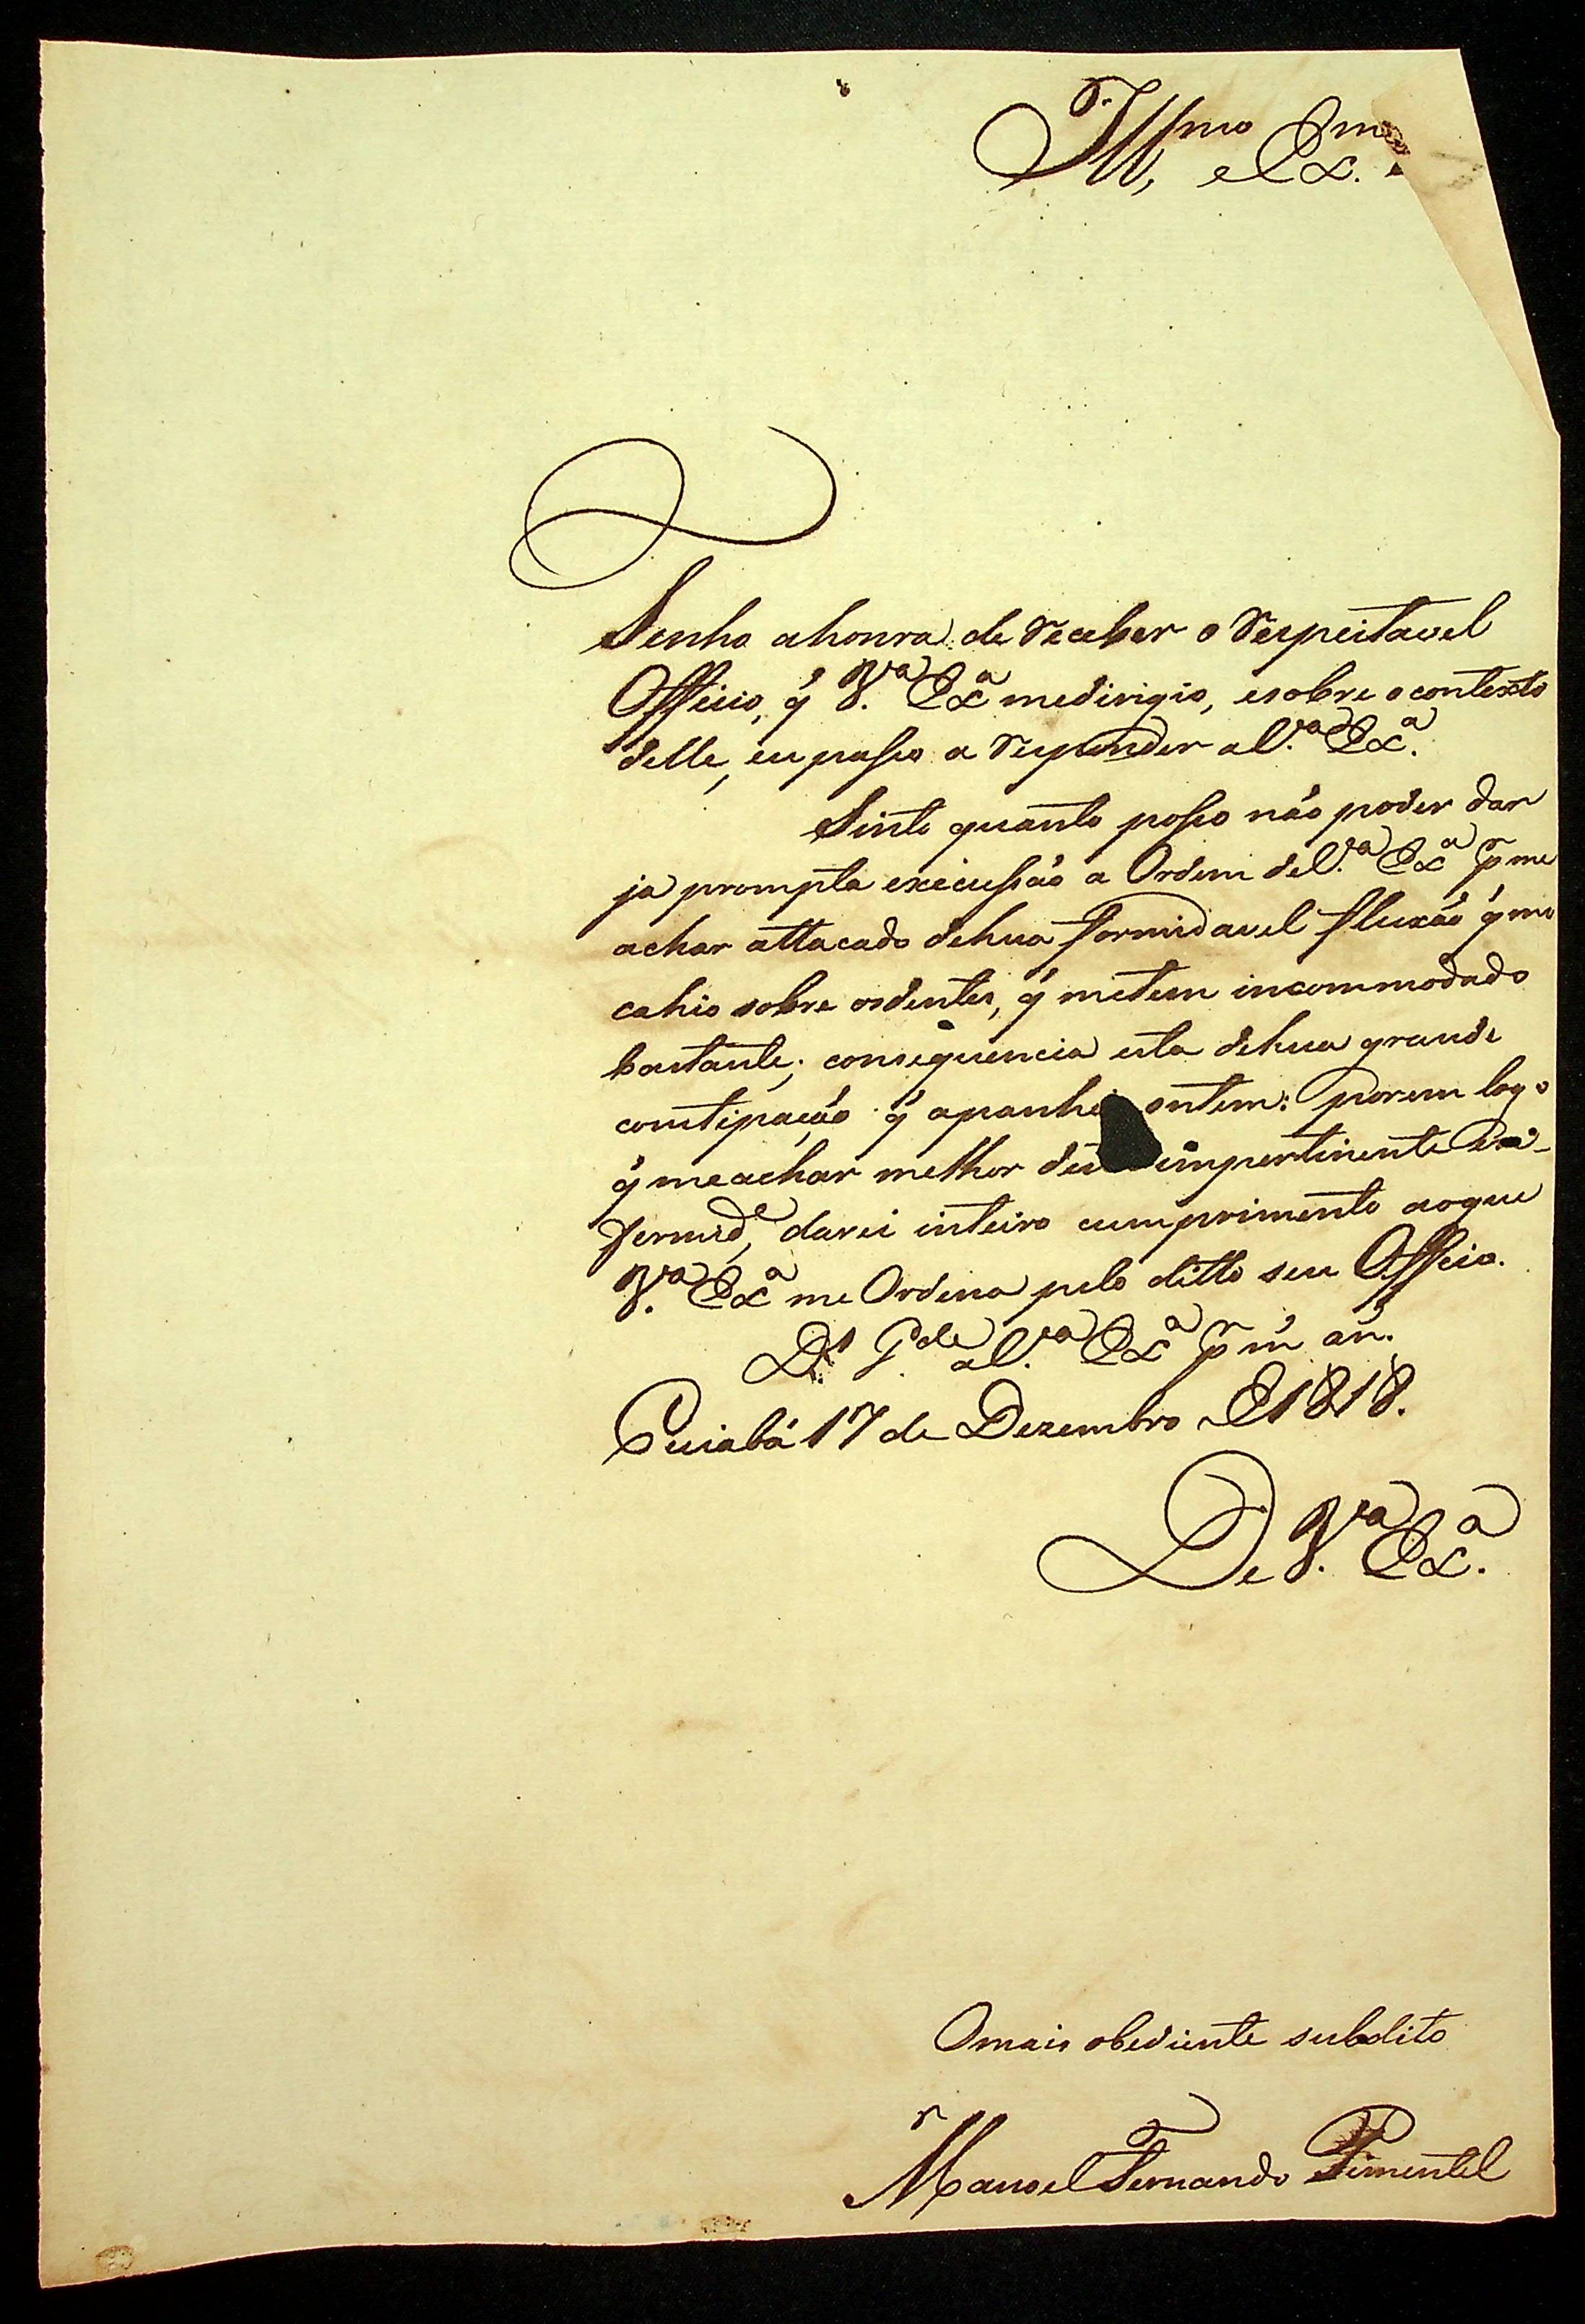 Ill.mo e Ex.mo
Tenho ahonra de receber o respeitavel
Officio, q̃ V.ra Ex.a medirigio, esobre ocontexto
delle, eu passo a responder aV.ra Ex.a
Sinto quanto posso não poder dar
ja prompta execussão a Ordem deV.ra Ex.a p.r me
achar attacado dehua formidavel fluxão q̃ me
cahio sobre osdentes, q̃ metem incommodado
bastante; consequencia esta dehua grande
constipação q̃ apanhei ontem: porem logo
q̃ meachar melhor impertinente en-
fermid.e, darei inteiro cumprimento aoque
V.ra Ex.a me Ordena pelo ditto seu Officio.
D.s G.de aV.ra Ex.a p.r m.s an.s
Cuiabá 17 de Dezembro de 1818.
De V.ra Ex.a
Omais obediente subdito
Manoel Fernando Pimentel